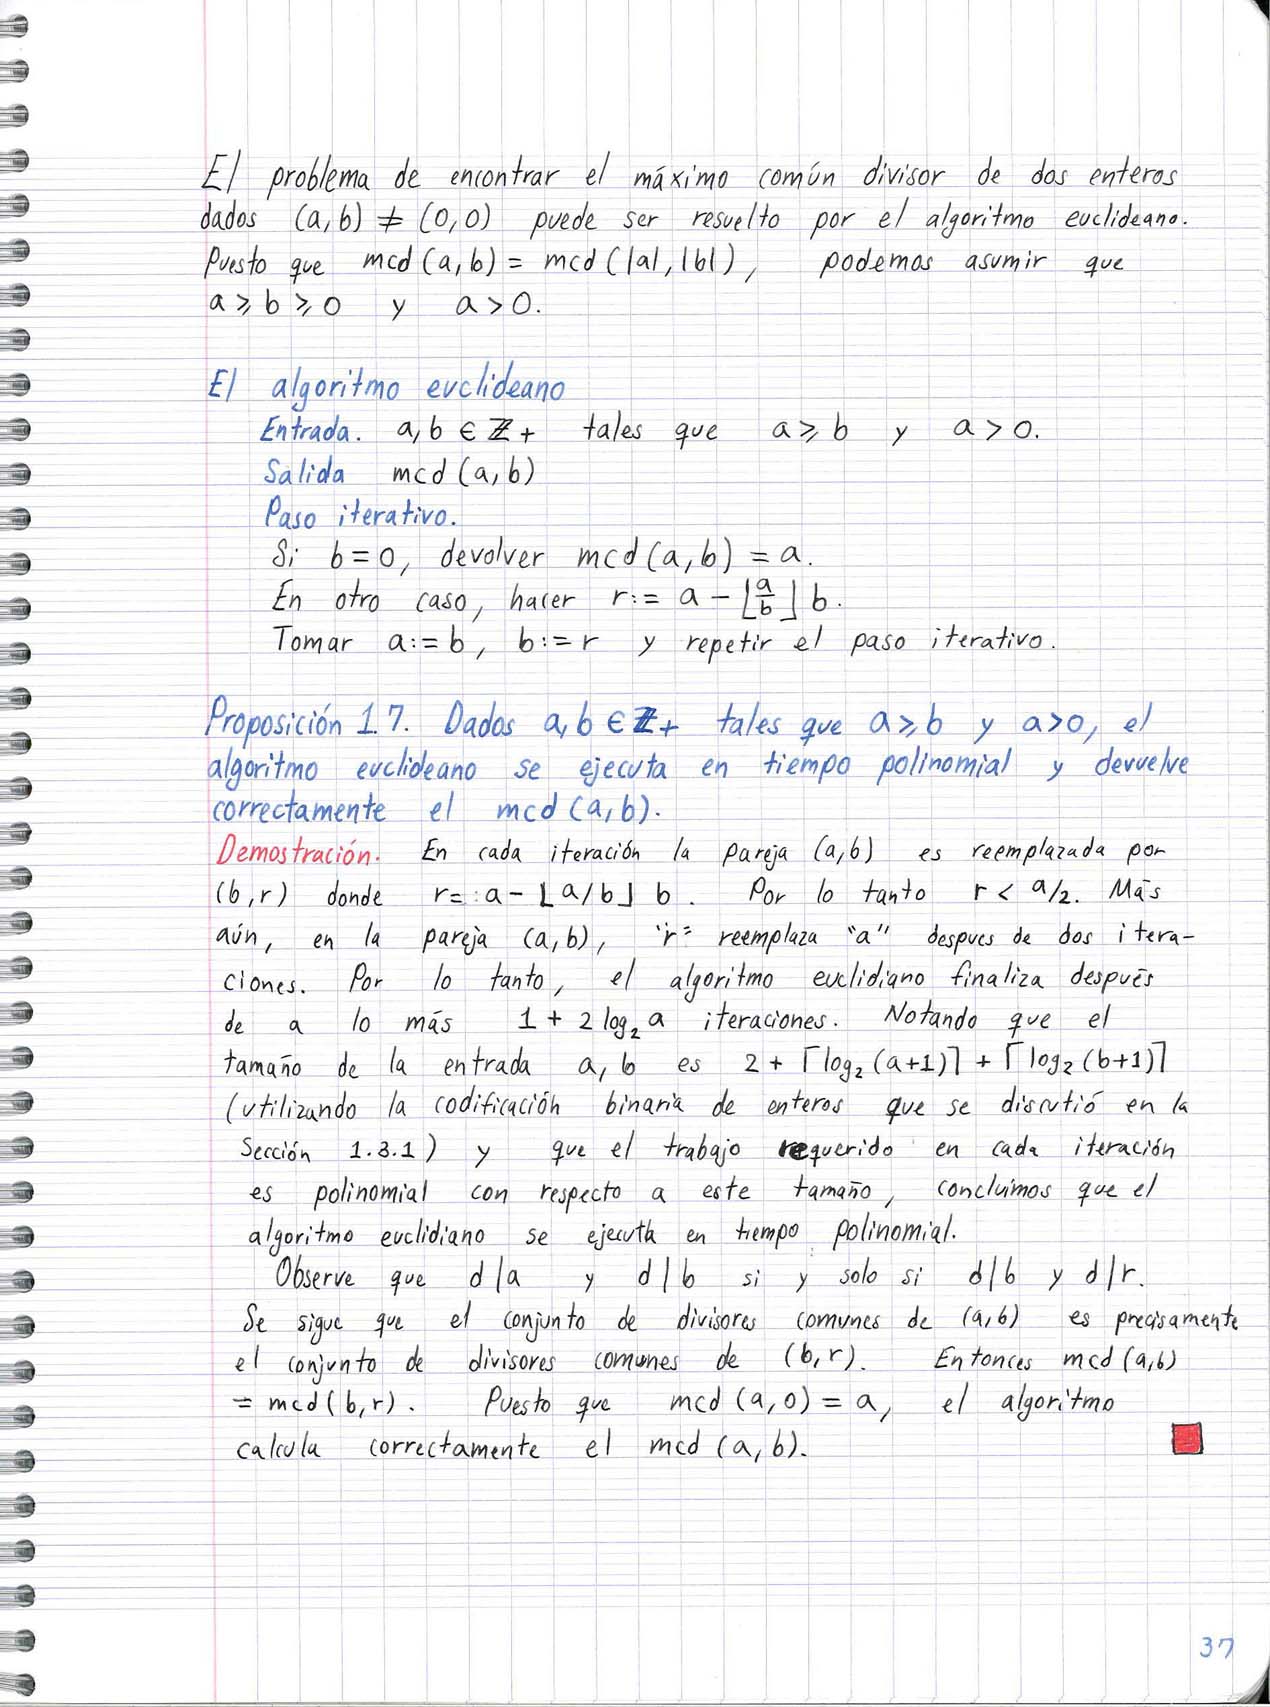 El problema de encontrar el máximo común divisor de dos enteros
dados (a,b) ≠ (0,0) puede ser resuelto por el algoritmo euclideano.
Puesto que mcd(a,b) = mcd(|a|,|b|), podemos asumir que
a ≥ b ≥ 0 y a > 0.
El algoritmo euclideano
Entrada. a,b ∈ ℤ+ tales que a ≥ b y a > 0.
Salida mcd(a,b)
Paso iterativo.
Si b = 0, devolver mcd(a,b) = a.
En otro caso, hacer r := a - ⌊a/b⌋ b.
Tomar a := b, b := r y repetir el paso iterativo.
Proposición 1.7. Dados a,b ∈ ℤ+ tales que a ≥ b y a > 0, el
algoritmo euclideano se ejecuta en tiempo polinomial y devuelve
correctamente el mcd(a,b).
Demostración. En cada iteración la pareja (a,b) es reemplazada por
(b,r) donde r =: a - ⌊a/b⌋ b. Por lo tanto r < a/2. Más
aún, en la pareja (a,b), "r" reemplaza "a" despues de dos itera-
ciones. Por lo tanto, el algoritmo euclidiano finaliza después
de a lo más 1 + 2 log₂ a iteraciones. Notando que el
tamaño de la entrada a, b es 2 + ⌈log₂(a+1)⌉ + ⌈log₂(b+1)⌉
(utilizando la codificación binaria de enteros que se discutió en la
Sección 1.3.1) y que el trabajo requerido en cada iteración
es polinomial con respecto a este tamaño, concluimos que el
algoritmo euclidiano se ejecuta en tiempo polinomial.
Observe que d|a y d|b si y solo si d|b y d|r.
Se sigue que el conjunto de divisores comunes de (a,b) es precisamente
el conjunto de divisores comunes de (b,r). Entonces mcd(a,b)
= mcd(b,r). Puesto que mcd(a,0) = a, el algoritmo
calcula correctamente el mcd(a,b).
37